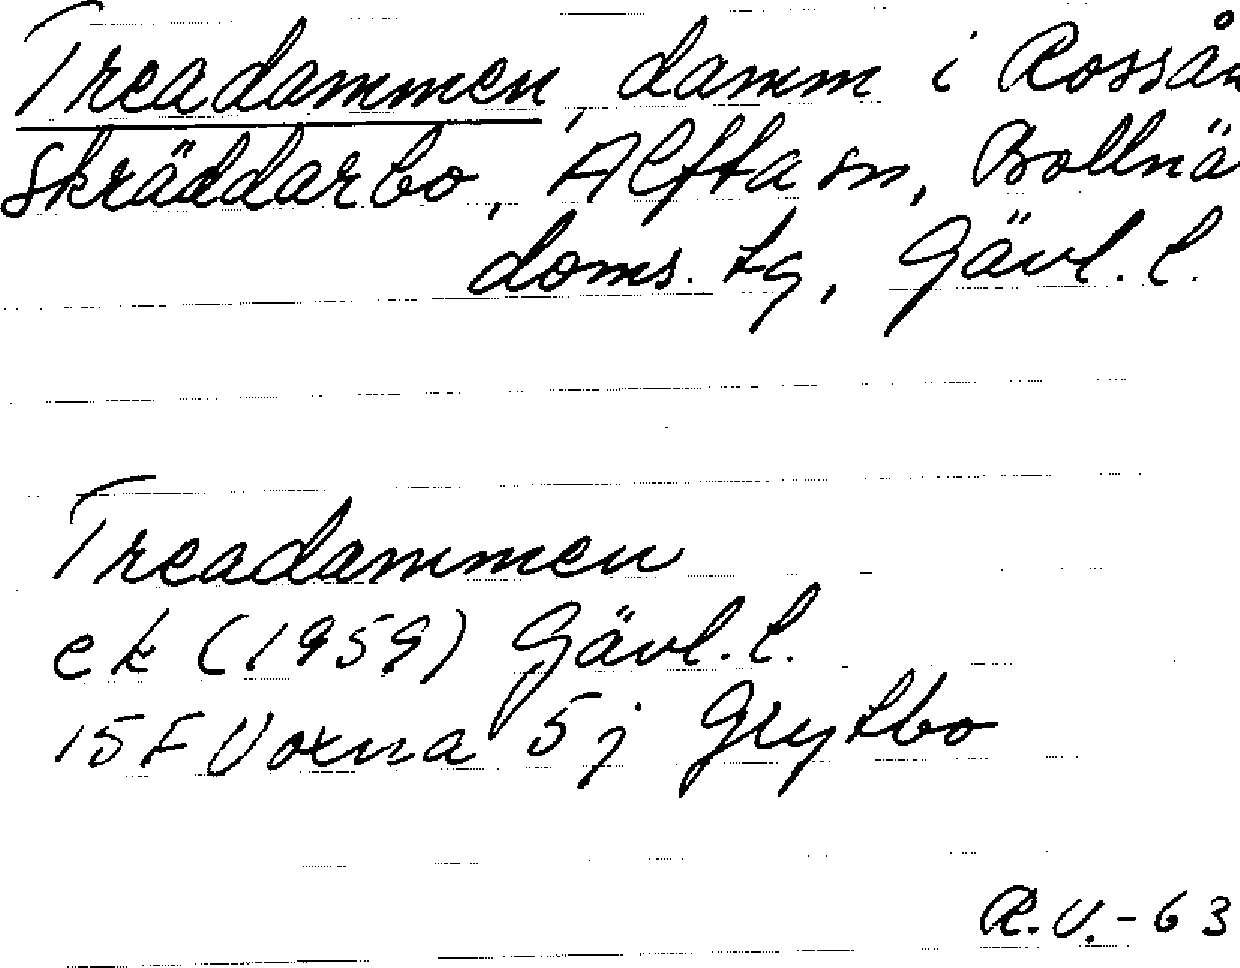 Treadammen, damm i Rossån
Skräddarbo, Alfta sn, Bollnä
doms. tg, Gävl. l.
Treadammen
ek (1959) Gävl. l.
15F Voxna 5j Grytbo
R.V.-63